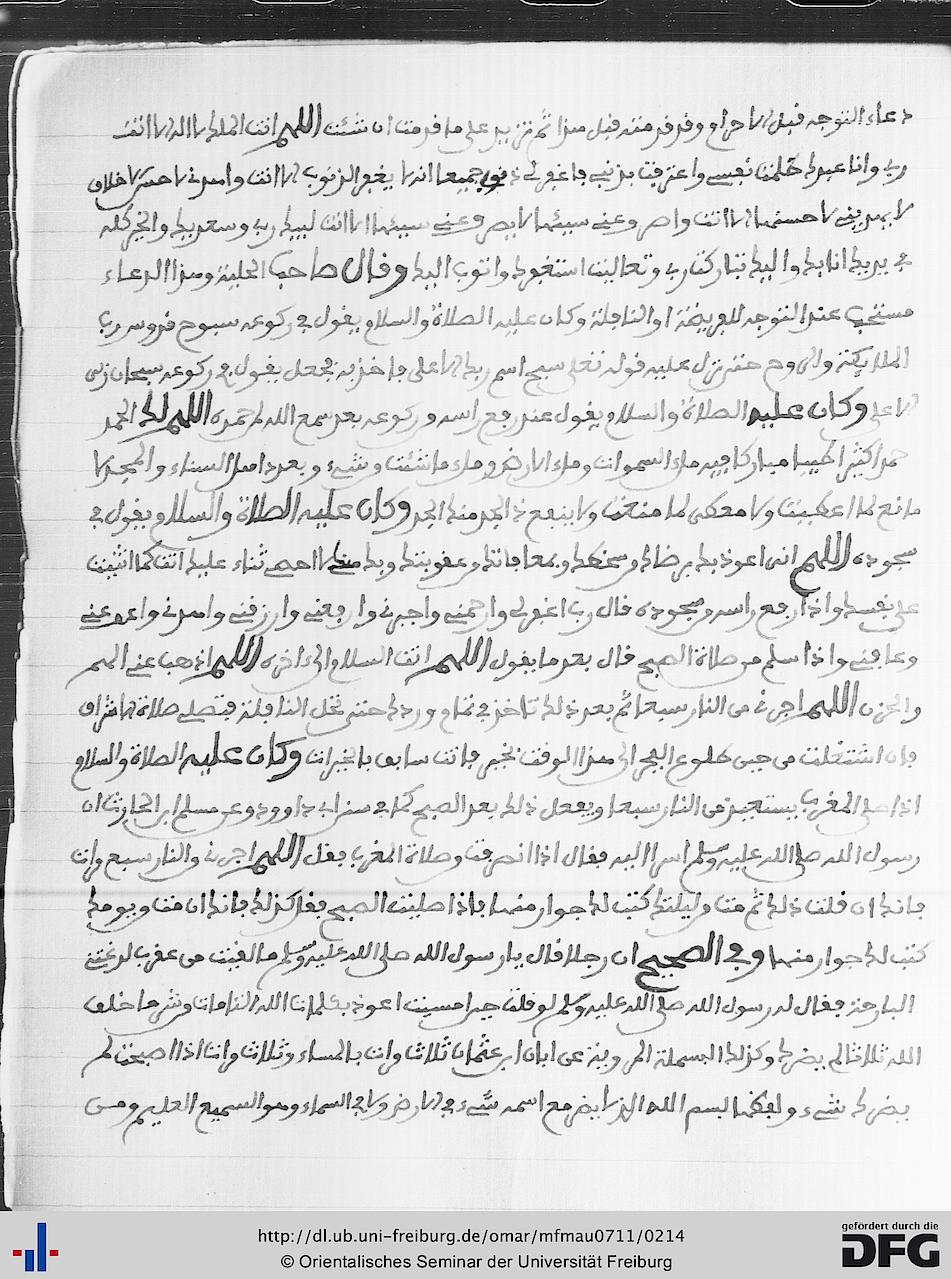 دعاء التوجه قبل الاحرام وقد قدمته قبل هذا ثم تزيد على ما قدمت ان شئت اللهم انت الملك لا اله الا انت
ربي وانا عبدك ظلمت نفسي واعترفت بذنبي فاغفر لي ذنوبي جميعا انه لا يغفر الذنوب الا انت واهدني لاحسن الاخلاق
لا يهدي لاحسنها الا انت واصرف عني سيئها لا يصرف عني سيئها الا انت لبيك ربي وسعديك والخير كله
في يديك انا بك واليك تباركت ربي وتعاليت استغفرك واتوب اليك وقال صاحب الحلية وهذا الدعاء
مستحب عند التوجه للفريضة او النافلة وكان عليه الصلاة والسلام يقول في ركوعه سبوح قدوس رب
الملايكة والروح حتى نزل عليه قوله تعلى سبح اسم ربك الاعلى فجعل يقول في ركوعه سبحان ربي
الاعلى وكان عليه الصلاة والسلام يقول عند رفع راسه من ركوعه بعد سمع الله لمن حمده اللهم لك الحمد
حمدا كثيرا طيبا مباركا فيه ملء السموات وملء الارض وملء ما شئت من شيء بعد اهل الثناء والمجد لا
مانع لما اعطيت ولا معطي لما منعت ولا ينفع ذا الجد منك الجد وكان عليه الصلاة والسلام يقول في
سجوده اللهم اني اعوذ بك برضاك من سخطك وبمعافاتك من عقوبتك وبك منك لا احصي ثناء عليك انت كما اثنيت
على نفسك واذا رفع راسه من سجوده قال رب اغفر لي وارحمني واجبرني وارفعني وارزقني واهدني واعف عني
وعافني واذا سلم من صلاة الصبح قال بعد ما يقول اللهم انت السلام الى اخره اللهم اذهب عني الهم
والحزن اللهم اجرني من النار سبعا ثم بعد ذلك تاخذ في تمام وردك حتى تحل النافلة فتصلي صلاة الاشراق
فان اشتغلت من حين طلوع الفجر الى هذا الوقت بخير فانت سابق بالخيرات وكان عليه الصلاة والسلام
اذا صلى المغرب يستعيذ من النار سبعا ويفعل ذلك بعد الصبح كما في سنن ابي داوود عن مسلم ابن الحارث ان
رسول الله صلى الله عليه وسلم اسر اليه فقال اذا انصرفت من صلاة المغرب فقل اللهم اجرني من النار سبع مرات
فانك ان قلت ذلك ثم مت من ليلتك كتب لك جوار منها فاذا صليت الصبح فقل كذلك فانك ان مت من يومك
كتب لك جوار منها وفي الصحيح ان رجلا قال يا رسول الله صلى الله عليه وسلم ما لقيت من عقرب لدغتني
البارحة فقال له رسول الله صلى الله عليه وسلم لو قلت حين امسيت اعوذ بكلمات الله التامات من شر ما خلق
الله ثلاثا لم يضرك وكذلك البسملة المروية عن ابان ابن عثمان ثلاث مرات بالمساء وثلاث مرات اذا اصبحت لم
يضرك شيء ولفظها بسم الله الذي لا يضر مع اسمه شيء في الارض ولا في السماء وهو السميع العليم ومن
http://dl.ub.uni-freiburg.de/omar/mfmau0711/0214
© Orientalisches Seminar der Universität Freiburg
gefördert durch die
DFG